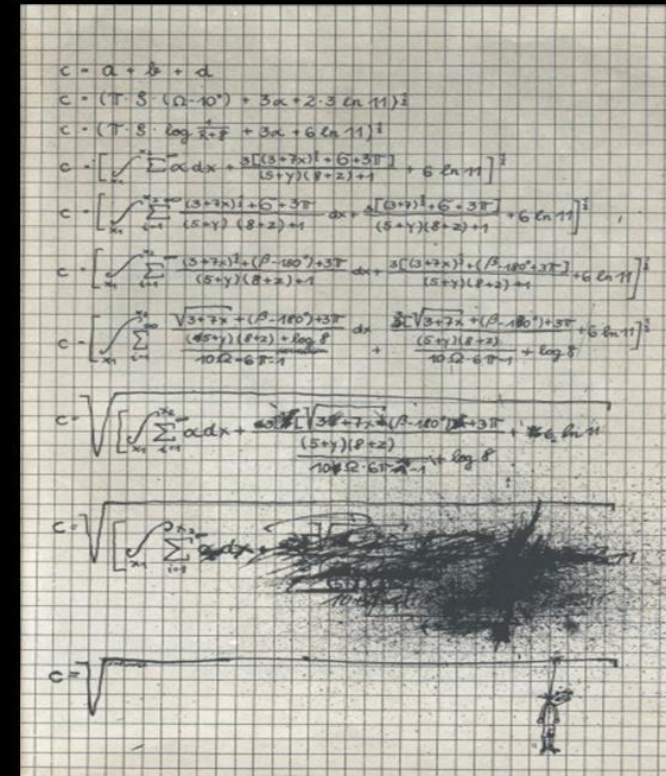 c = a + b + d
c = (π · S · (Ω-10°) + 3α + 2·3 ln 11)^½
c = (π · S · log + 3α + 6 ln 11)^½
c = [∫_{x₁}^{x₂} Σ α dx + 3[(3+7x)^½ + 6 + 3π] / (5+y)(8+z)+1 + 6 ln 11]^½
c = [∫_{x₁}^{x₂} Σ_{i=1}^{∞} (3+7x)^½ + 6 + 3π / (5+y)(8+z)+1 dx + 3[(3+7)^½ + 6 + 3π] / (5+y)(8+z)+1 + 6 ln 11]^½
c = [∫_{x₁}^{x₂} Σ_{i=1}^{∞} (3+7x)^½ + (β-180°)+3π / (5+y)(8+z)+1 dx + 3[(3+7x)^½ + (β-180°+3π] / (5+y)(8+z)+1 + 6 ln 11]^½
c = [∫_{x₁}^{x₂} Σ_{i=1}^{∞} √3+7x + (β-180°)+3π / (5+y)(8+z) + log 8 / 10Ω-6π-1 dx + 3[√3+7x + (β-180°)+3π / (5+y)(8+z) / 10Ω-6π-1 + log 8 + 6 ln 11]^½
c = √[∫_{x₁}^{x₂} Σ_{i=1}^{∞} α dx + 3[√3+7x + (β-180°)+3π / (5+y)(8+z) / 10Ω-6π-1 + log 8 + 6 ln 11
c = √[∫_{x₁}^{x₂} Σ_{i=1}^{∞} dx +
c = √